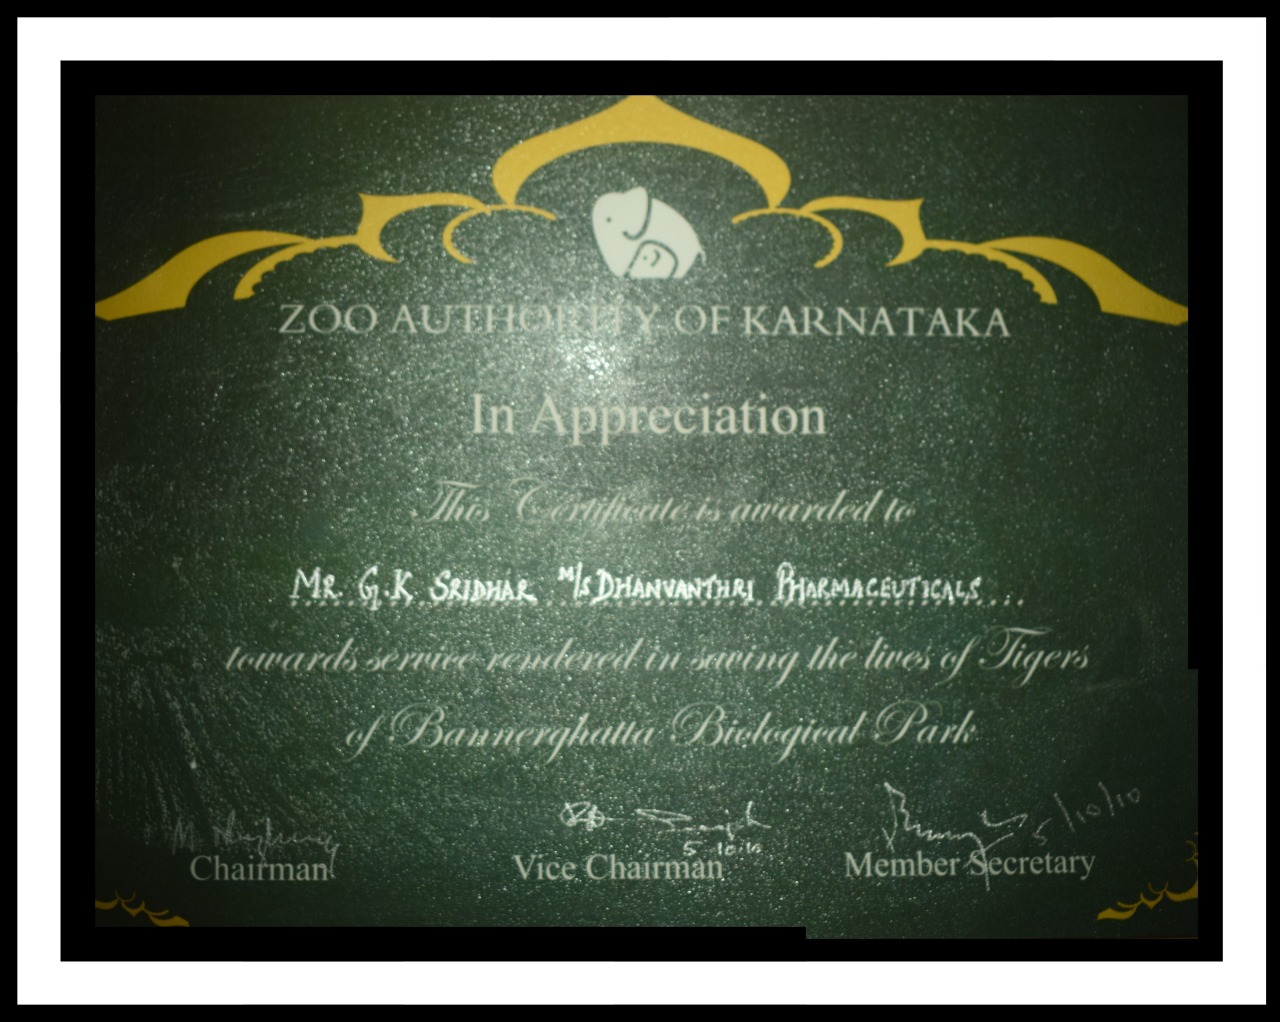 ZOO AUTHORITY OF KARNATAKA
In Appreciation
This Certificate is awarded to
MR. G.K SRIDHAR M/S DHANVANTHRI PHARMACEUTICALS...
towards service rendered in saving the lives of Tigers
of Bannerghatta Biological Park
5-10-10
5/10/10
Chairman Vice Chairman Member Secretary